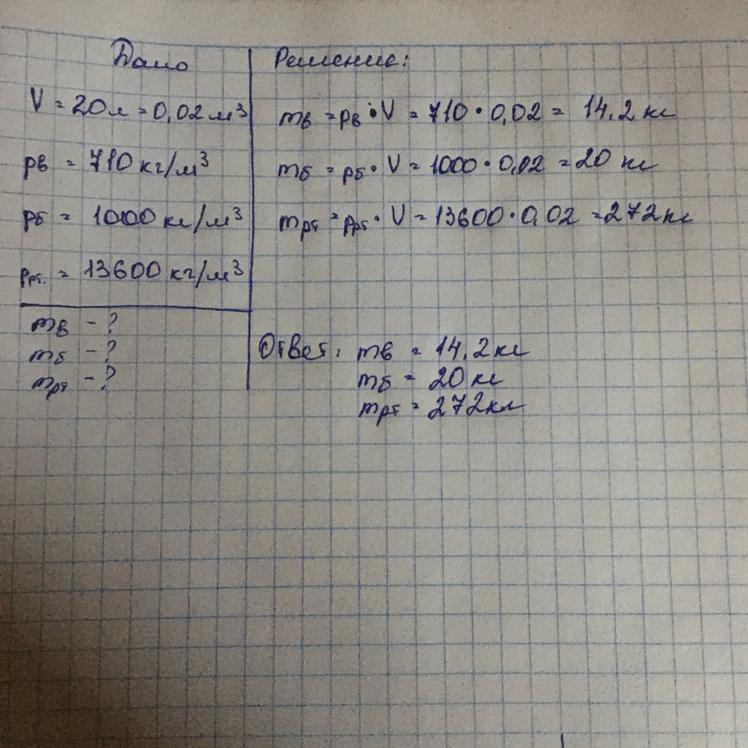 Дано
V = 20л = 0,02 м³
рв = 710 кг/м³
рб = 1000 кг/м³
ррт. = 13600 кг/м³
mв - ?
mб - ?
mрт - ?
Решение:
mв = рв · V = 710 · 0,02 = 14,2 кг
mб = рб · V = 1000 · 0,02 = 20 кг
mрт = ррт · V = 13600 · 0,02 = 272 кг
Ответ: mв = 14,2 кг
mб = 20 кг
mрт = 272 кг